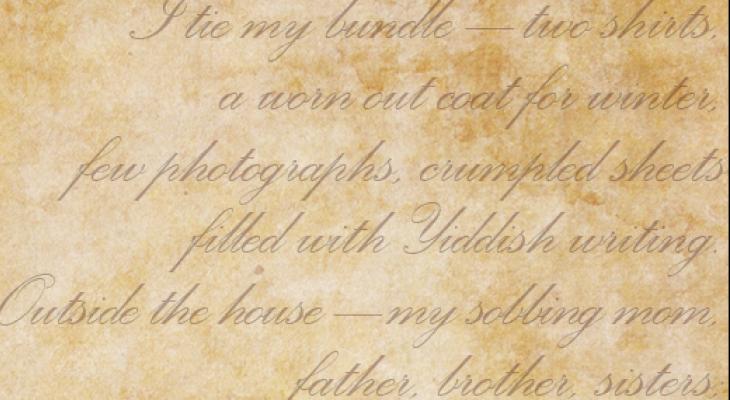 I tie my bundle — two shirts,
a worn out coat for winter,
few photographs, crumpled sheets
filled with Yiddish writing.
Outside the house — my sobbing mom,
father, brother, sisters,